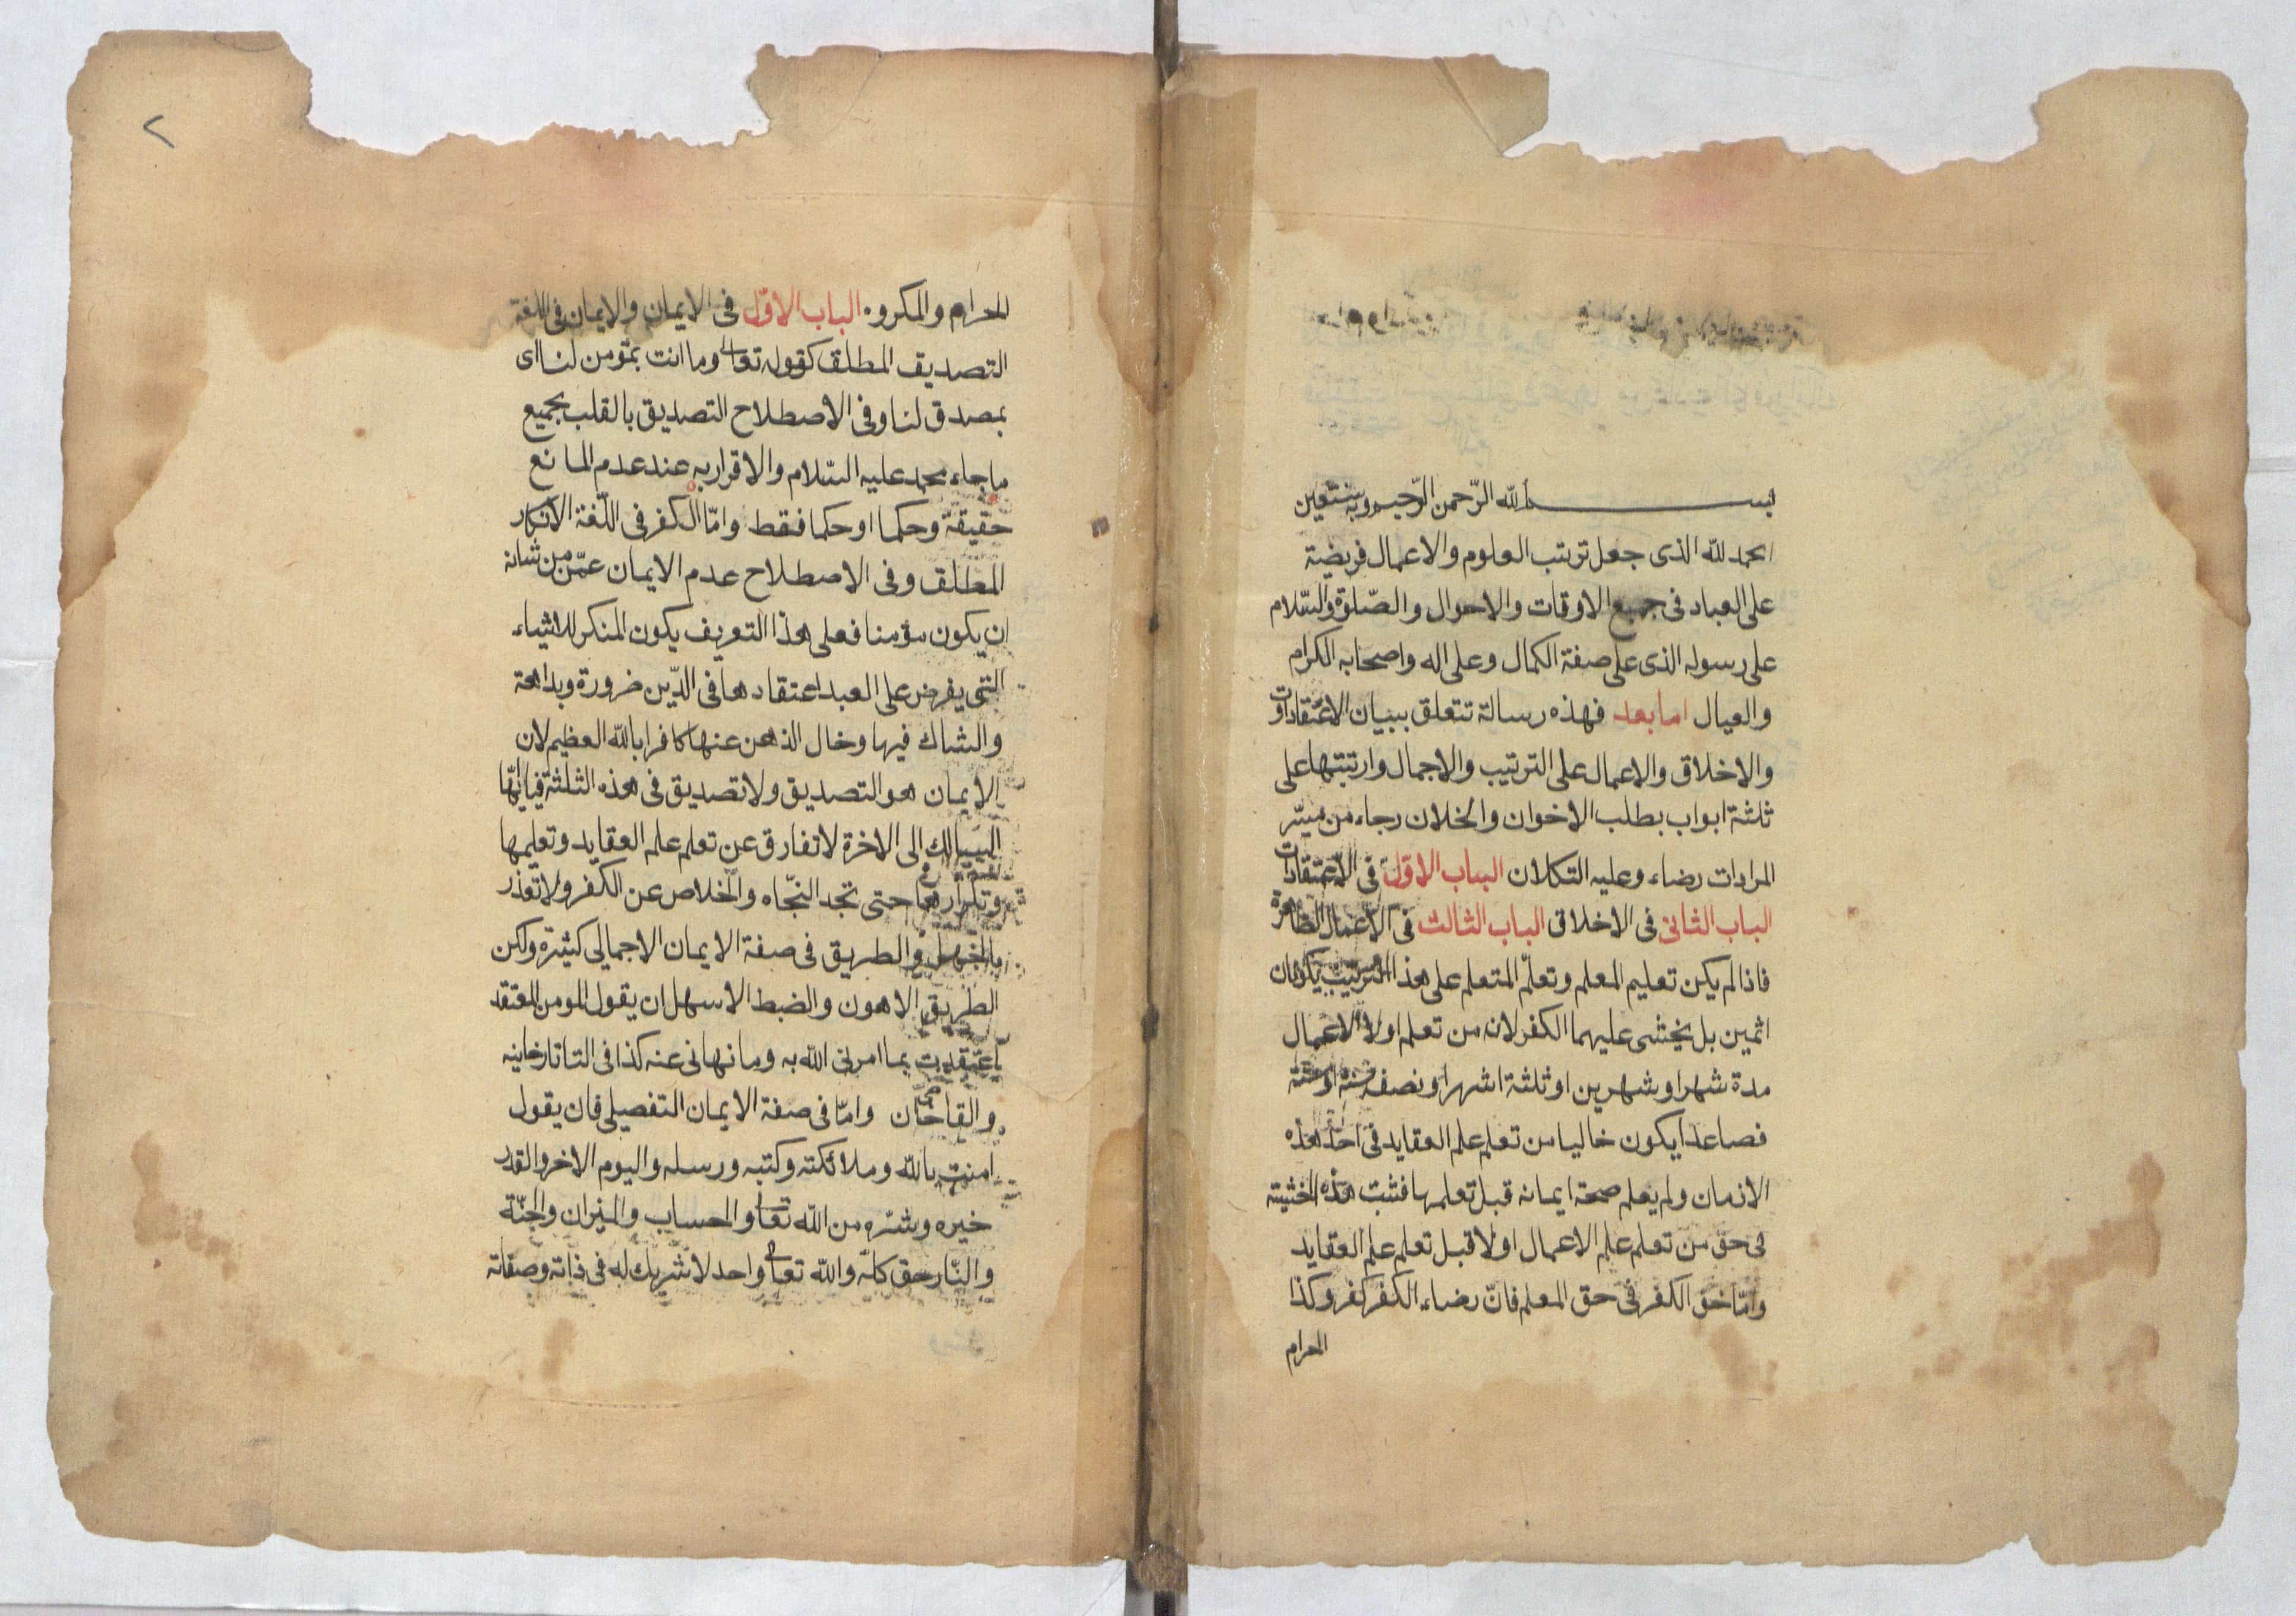 بسم الله الرّحمن الرّحيم وبه نستعين
الحمد لله الذى جعل ترتب العلوم والاعمال فريضة
على العباد فى جميع الاوقات والاحوال والصّلوة والسّلام
على رسوله الذى على صفة الكمال وعلى اله واصحابه الكرام
والعيال اما بعد فهذه رسالة تتعلق ببيان الاعتقادات
والاخلاق والاعمال على الترتيب والاجمال وارتبتها على
ثلثة ابواب بطلب الاخوان والخلان رجاء من ميسّر
المرادات رضاء وعليه التكلان الباب الاوّل فى الاعتقادات
الباب الثانى فى الاخلاق الباب الثالث فى الاعمال الظاهرة
فاذا لم يكن تعليم المعلم وتعلّم المتعلم على هذا الترتيب يكونان
اثمين بل يخشى عليهما الكفر لان من تعلم اولا الاعمال
مدة شهر او شهرين او ثلثة اشهر او نصف سنة او سنة
فصاعدا يكون خاليا من تعلم علم العقايد فى احد هذه
الازمان ولم يعلم صحة ايمانه قبل تعلمها فثبت هذه الخشية
فى حق من تعلم علم الاعمال اولا قبل تعلم علم العقايد
وامّا حق الكفر فى حق المعلم فانّ رضاء الكفر كفر وكذا
الحرام
٢
الحرام والمكروه الباب الاوّل فى الايمان والايمان فى اللغة
التصديق المطلق كقوله تعالى وما انت بمؤمن لنا اى
بمصدق لنا وفى الاصطلاح التصديق بالقلب بجميع
ما جاء محمد عليه السّلام والاقرار به عند عدم المانع
حقيقة وحكما او حكما فقط وامّا الكفر فى اللّغة الانكار
المطلق وفى الاصطلاح عدم الايمان عمّن من شانه
ان يكون مؤمنا فعلى هذا التعريف يكون المنكر للاشياء
التى يفرض على العبد اعتقادها فى الدّين ضرورة وبداهة
والشاك فيها وخال الذهن عنها كافرا بالله العظيم لان
الايمان هو التصديق ولا تصديق فى هذه الثلثة فيا ايّها
السالك الى الاخرة لا تفارق عن تعلم علم العقايد وتعليمها
وتكرارها حتى تجد النجّاه والخلاص عن الكفر ولا تعذر
بالجهل والطريق فى صفة الايمان الاجمالى كثيرة ولكن
الطريق الاهون والضبط الاسهل ان يقول المومن المعتقد
اعتقدت بما امرنى الله به وما نهانى عنه كذا فى التاتارخانيه
والقاضخان وامّا فى صفة الايمان التفصيلى فان يقول
امنت بالله وملائكته وكتبه ورسله واليوم الاخر والقدر
خيره وشرّه من الله تعالى والحساب والميزان والجنّة
والنّار حق كلّه والله تعالى واحد لا شريك له فى ذاته وصفاته